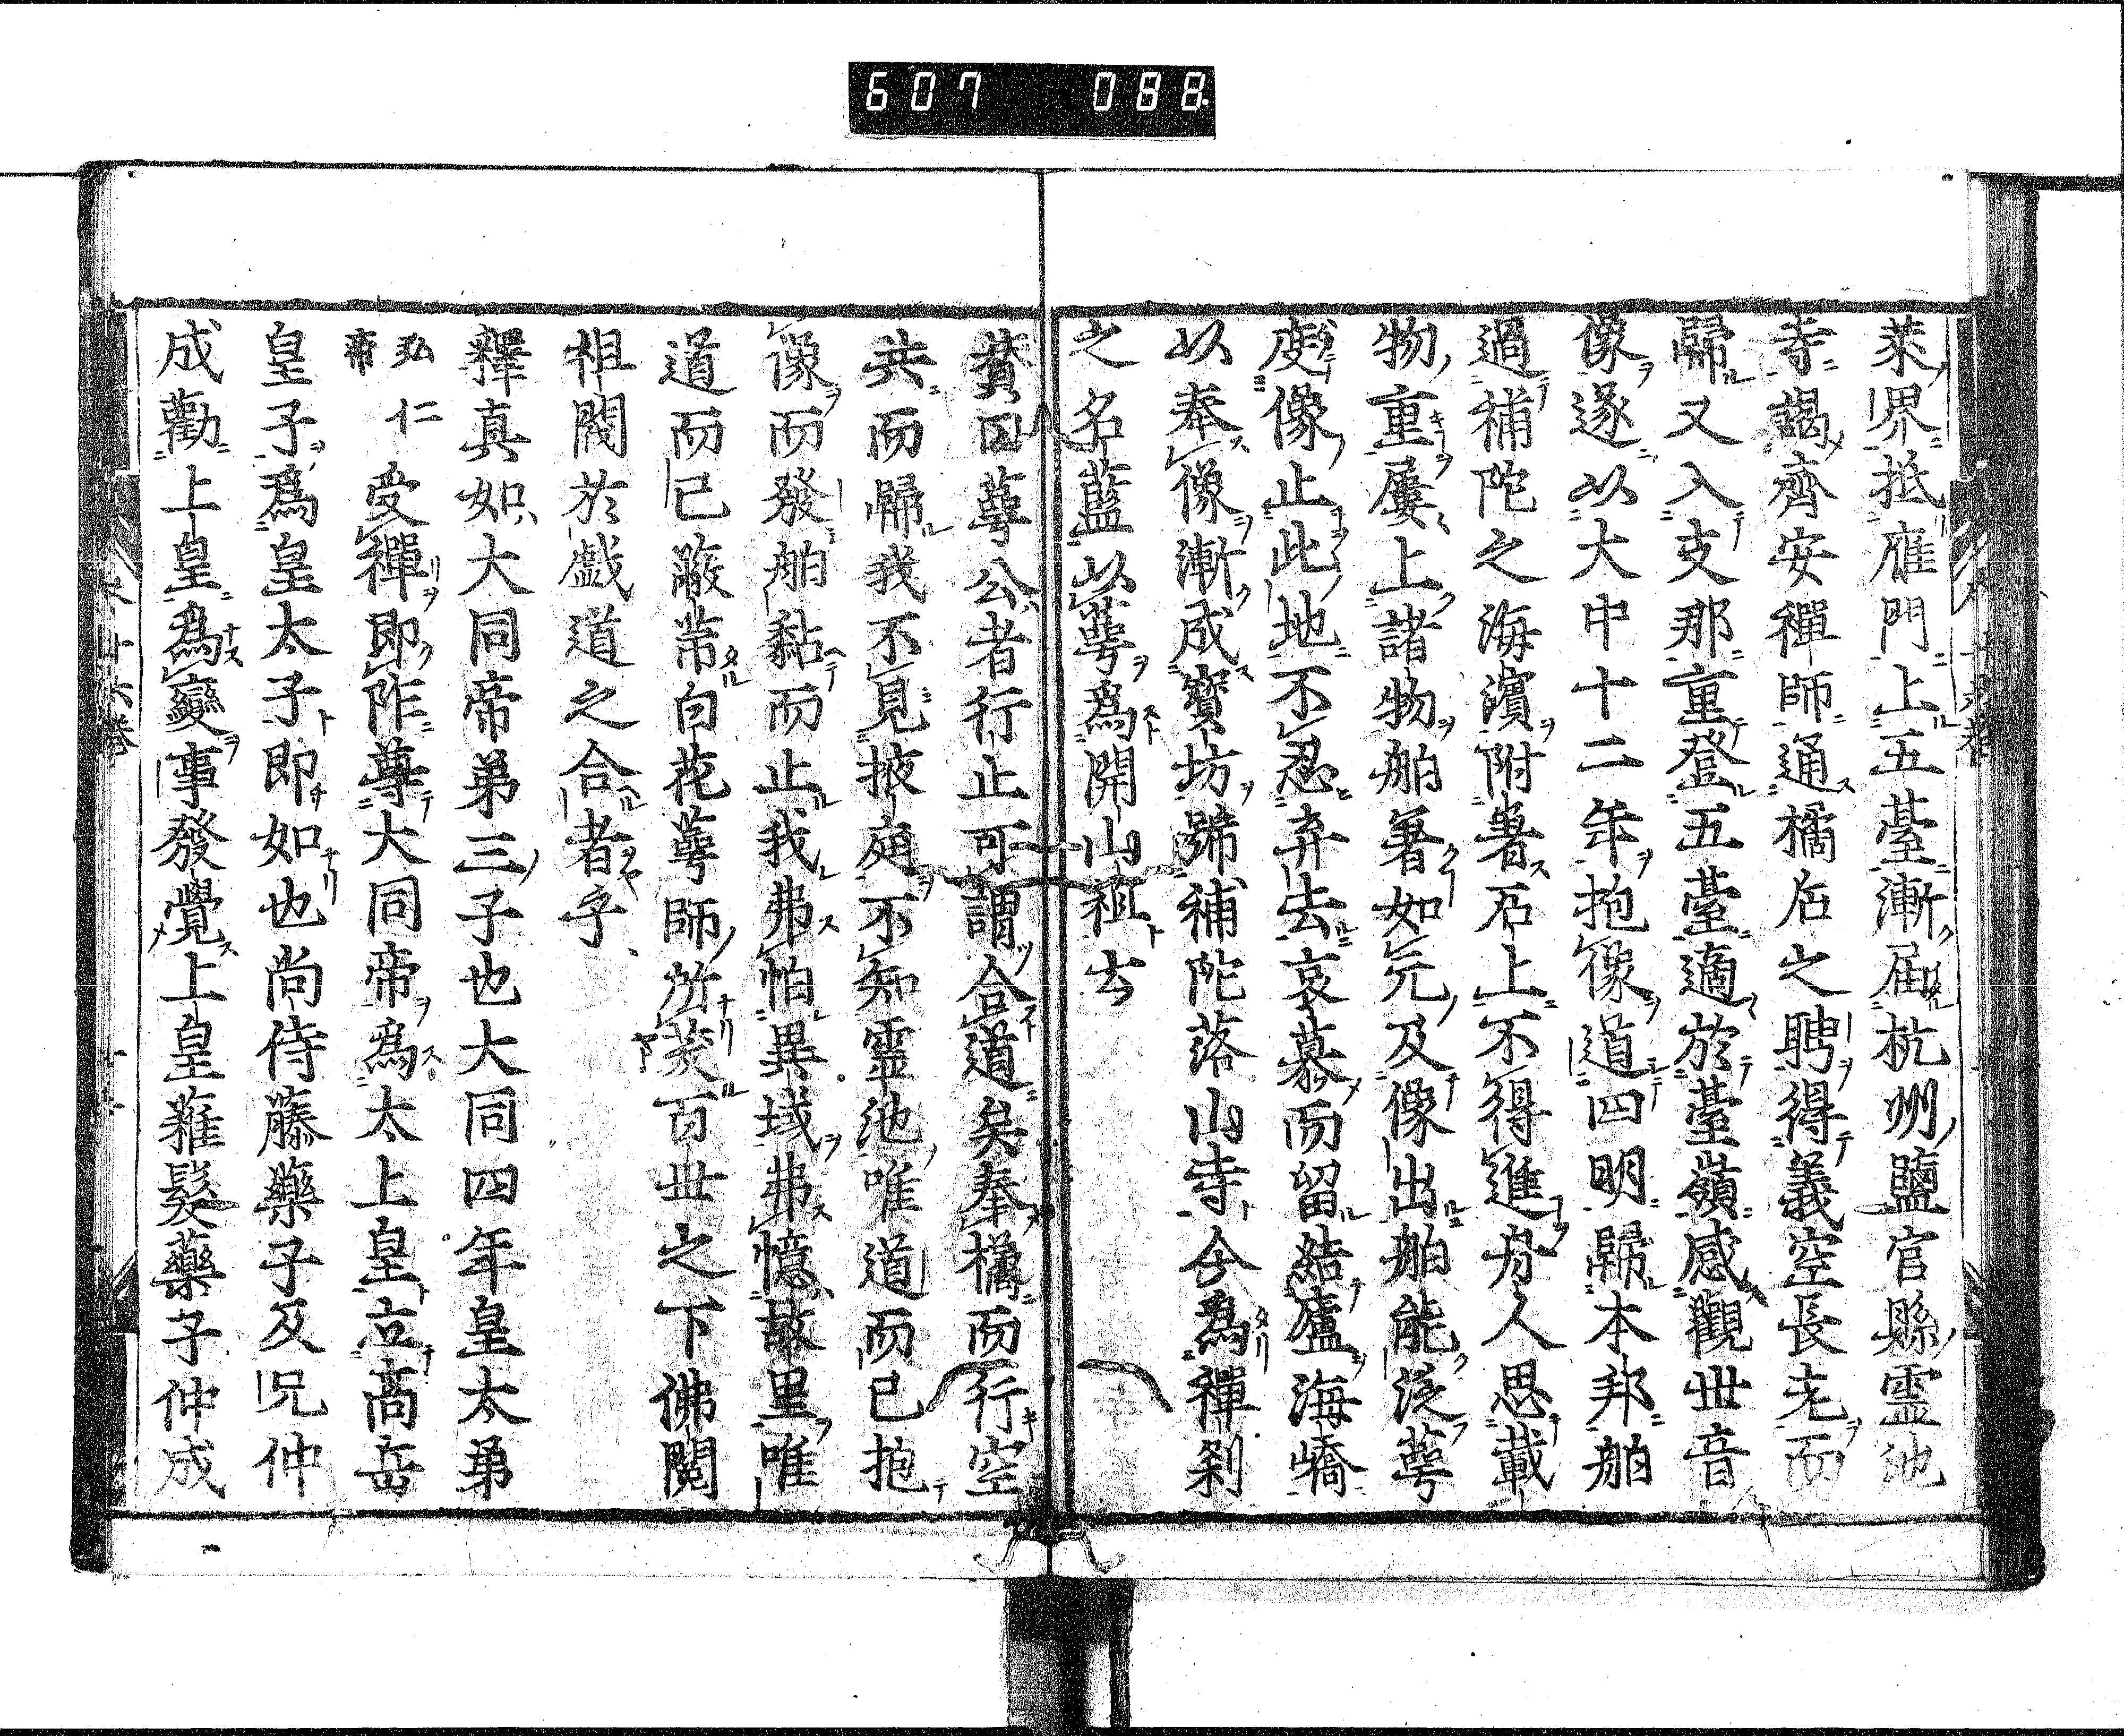 607 088
萊界抵鴈門上五臺漸届杭州鹽官縣靈池
寺謁齊安禪師通橘后之聘得義空長老而
歸又入支那重登五臺適於臺嶺感觀世音
像遂以大中十二年抱像道四明歸本邦舶
過補陀之海濱附著石上不得進舟人思載
物重屢上諸物舶著如元及像出舶能泛萼
度像止此地不忍弃去哀慕而留結廬海嶠
以奉像漸成寳坊號補陀落山寺今為禪刹
之名藍以萼爲開山祖云
賛曰萼公者行止可謂合道矣奉橘而行空
共而歸我不見掖庭不知靈池唯道而已抱
像而發舶黏而止我弗怕異域弗憶故里唯
道而已蔽芾白花萼師所茇百世之下佛閥
祖閥於戲道之合者乎
釋真如大同帝弟三子也大同四年皇太弟
弘仁帝受禪即阼尊大同帝爲太上皇立高岳
皇子爲皇太子即如也尚侍藤藥子及兄仲
成勸上皇爲變事發覺上皇薙髮藥子仲成